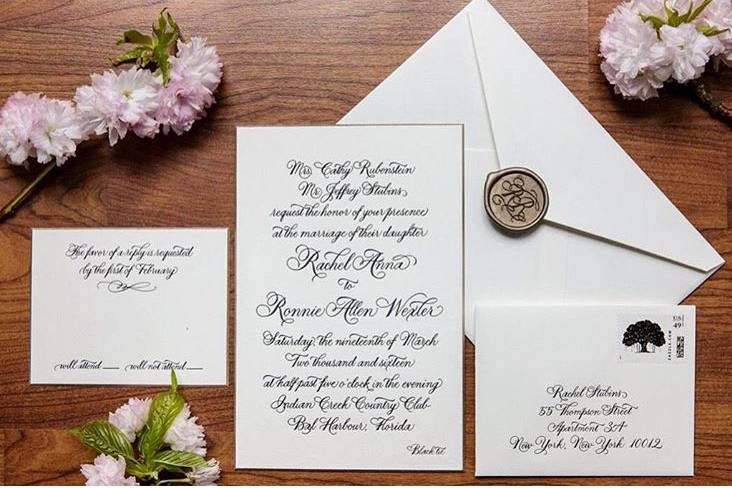 The favor of a reply is requested
by the first of February
will attend   will not attend
Ms Cathy Rubenstein
Mr Jeffrey Stubins
request the honor of your presence
at the marriage of their daughter
Rachel Anna
to
Ronnie Allen Wexler
Saturday, the nineteenth of March
Two thousand and sixteen
at half past five o'clock in the evening
Indian Creek Country Club
Bal Harbour, Florida
Black tie
US
49
ZAZZLE.COM
Rachel Stubins
55 Thompson Street
Apartment 3A
New York, New York 10012